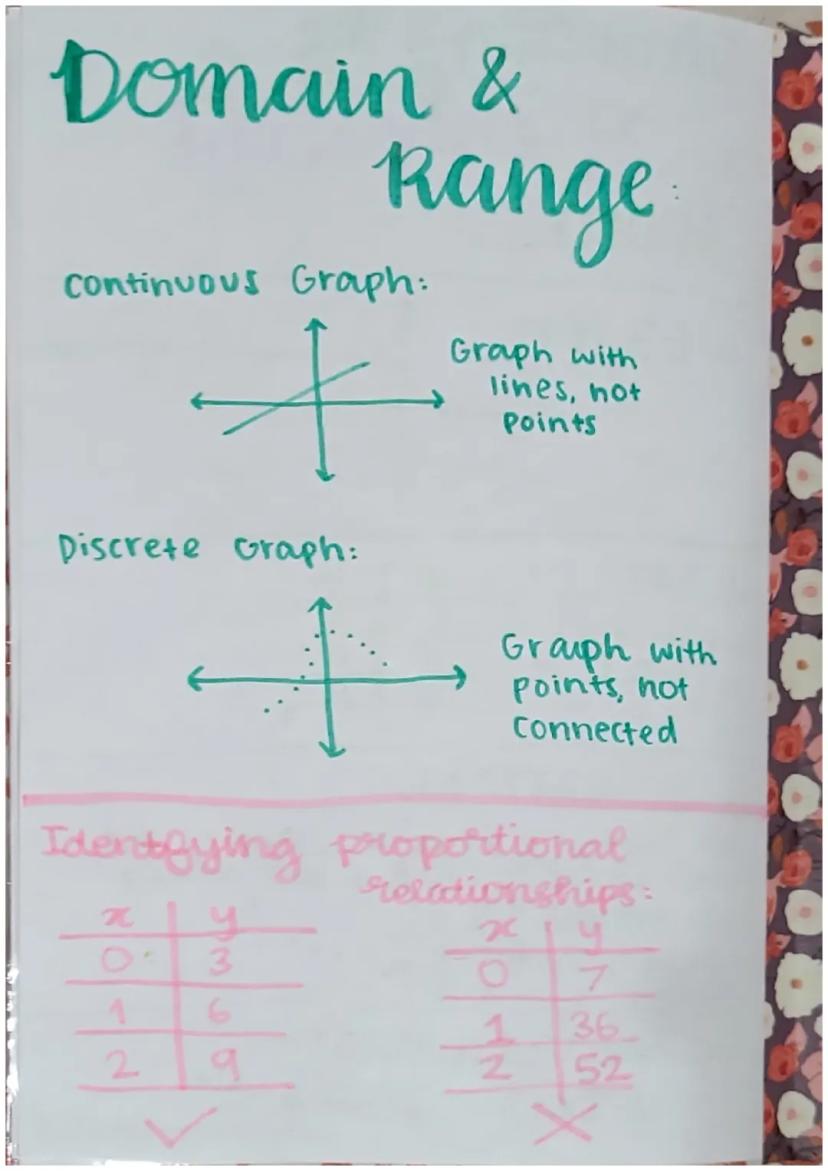 Domain &
Range:
Continuous Graph:
Graph with
lines, not
points
Discrete Graph:
Graph with
points, not
connected
Identifying proportional
relationships:
x y
0 3
1 6
2 9
✓
x y
0 7
1 36
2 52
✗